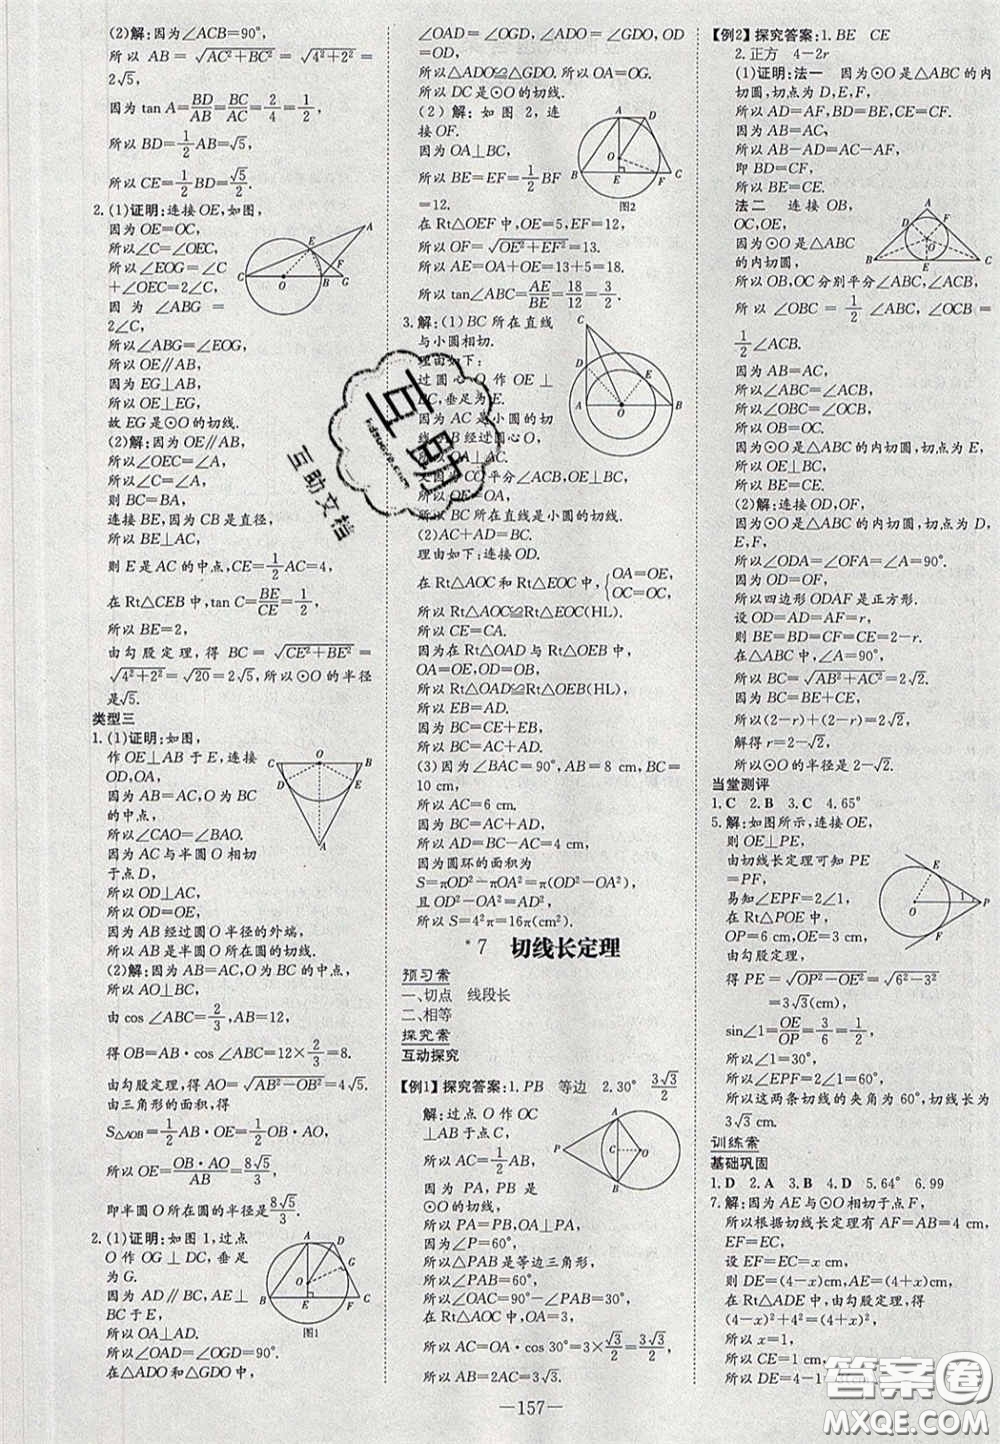 (2)解:因为∠ACB=90°,
所以 AB=√(AC²+BC²)=√(4²+2²)=
2√5,
因为 tan A=BD/AB=BC/AC=2/4=1/2,
所以 BD=1/2AB=√5,
所以 CE=1/2BD=√5/2.
2. (1)证明:连接OE,如图,
因为 OE=OC,
所以∠C=∠OEC,
所以∠EOG=∠C
+∠OEC=2∠C,
因为∠ABG=
2∠C,
所以∠ABG=∠EOG,
所以 OE∥AB,
因为 EG⊥AB,
所以 OE⊥EG,
故 EG是⊙O的切线.
(2)解:因为 OE∥AB,
所以∠OEC=∠A,
所以∠C=∠A,
则 BC=BA,
连接BE,因为 CB是直径,
所以 BE⊥AC,
则 E是AC的中点,CE=1/2AC=4,
在 Rt△CEB中,tan C=BE/CE=1/2,
所以 BE=2,
由勾股定理,得 BC=√(CE²+BE²)=
√(4²+2²)=√20=2√5,所以⊙O的半径
是√5.
类型三
1. (1)证明:如图,
作OE⊥AB于E,连接
OD,OA,
因为 AB=AC,O是BC
的中点,
所以∠CAO=∠BAO.
因为 AC与半圆O相切
于点D,
所以 OD⊥AC,
所以 OD=OE,
因为 AB经过圆O半径的外端,
所以 AB是半圆O所在圆的切线.
(2)解:因为 AB=AC,O是BC的中点,
所以 AO⊥BC,
由 cos∠ABC=2/3,AB=12,
得 OB=AB·cos∠ABC=12×2/3=8.
由勾股定理,得 AO=√(AB²−OB²)=4√5.
由三角形的面积,得
S△AOB=1/2AB·OE=1/2OB·AO,
所以 OE=OB·AO/AB=8√5/3,
即半圆O所在圆的半径是8√5/3.
2. (1)证明:如图1,过点
O作OG⊥DC,垂足
为G.
因为 AD∥BC,AE⊥
BC于E,
所以 OA⊥AD.
所以∠OAD=∠OGD=90°.
在△ADO和△GDO中,
图1
∠OAD=∠OGD,∠ADO=∠GDO,OD
=OD,
所以△ADO≌△GDO.所以 OA=OG.
所以 DC是⊙O的切线.
(2) 解:如图2,连
接OF.
因为 OA⊥BC,
所以 BE=EF=1/2BF
=12.
图2
在 Rt△OEF中,OE=5,EF=12,
所以 OF=√(OE²+EF²)=13.
所以 AE=OA+OE=13+5=18.
所以 tan∠ABC=AE/BE=18/12=3/2.
3. 解:(1)BC所在直线
与小圆相切.
理由如下:
过圆心O作OE⊥
BC,垂足为E.
因为 AC是小圆的切
线,AB经过圆心O,
所以 OA⊥AC.
又因为 CO平分∠ACB,OE⊥BC,
所以 OE=OA,
所以 BC所在直线是小圆的切线.
(2)AC+AD=BC.
理由如下:连接OD.
在 Rt△AOC和 Rt△EOC中,{OA=OE, OC=OC,
所以 Rt△AOC≌Rt△EOC(HL).
所以 CE=CA.
因为在 Rt△OAD与 Rt△OEB中,
OA=OE,OD=OB,
所以 Rt△OAD≌Rt△OEB(HL),
所以 EB=AD.
因为 BC=CE+EB,
所以 BC=AC+AD.
(3)因为∠BAC=90°,AB=8 cm,BC=
10 cm,
所以 AC=6 cm.
因为 BC=AC+AD,
所以 AD=BC−AC=4 cm,
因为圆环的面积为
S=πOD²−πOA²=π(OD²−OA²),
且 OD²−OA²=AD²,
所以 S=4²π=16π(cm²).
*7 切线长定理
预习案
一、切点 线段长
二、相等
探究案
互动探究
【例1】探究答案:1.PB 等边 2.30° 3√3/2
解:过点O作OC
⊥AB于点C,
所以 AC=1/2AB,
因为 PA,PB是
⊙O的切线,
所以 PA=PB,OA⊥PA,
因为∠P=60°,
所以△PAB是等边三角形,
所以∠PAB=60°,
所以∠OAC=90°−∠PAB=30°,
在 Rt△AOC中,OA=3,
所以 AC=OA·cos30°=3×√3/2=3√3/2,
所以 AB=2AC=3√3.
【例2】探究答案:1.BE CE
2.正方 4−2r
(1)证明:法一 因为⊙O是△ABC的内
切圆,切点为D,E,F,
所以 AD=AF,BD=BE,CE=CF.
因为 AB=AC,
所以 AB−AD=AC−AF,
即 BD=CF.
所以 BE=CE.
法二 连接OB,
OC,OE,
因为⊙O是△ABC
的内切圆,
所以 OB,OC分别平分∠ABC,∠ACB,
所以∠OBC=1/2∠ABC,∠OCB=
1/2∠ACB.
因为 AB=AC,
所以∠ABC=∠ACB,
所以∠OBC=∠OCB,
所以 OB=OC.
因为⊙O是△ABC的内切圆,切点为E,
所以 OE⊥BC,
所以 BE=CE.
(2)解:连接OD,OF,
因为⊙O是△ABC的内切圆,切点为D,
E,F,
所以∠ODA=∠OFA=∠A=90°.
因为 OD=OF,
所以四边形ODAF是正方形.
设 OD=AD=AF=r,
则 BE=BD=CF=CE=2−r.
在△ABC中,∠A=90°,
所以 BC=√(AB²+AC²)=2√2.
所以(2−r)+(2−r)=2√2,
解得 r=2−√2,
所以⊙O的半径是2−√2.
当堂测评
1.C 2.B 3.C 4.65°
5.解:如图所示,连接OE,
则 OE⊥PE,
由切线长定理可知 PE
=PF,
易知∠EPF=2∠1,
因为 OE=3 cm,
OP=6 cm,
由勾股定理,
得 PE=√(OP²−OE²)=√(6²−3²)
=3√3(cm),
sin∠1=OE/OP=3/6=1/2,
所以∠1=30°,
所以∠EPF=60°,
所以这两条切线的夹角为60°,切线长为
3√3 cm.
训练案
基础巩固
1.D 2.A 3.B 4.D 5.64° 6.99
7.解:因为 AE与⊙O切于点F,
所以根据切线长定理有 AF=AB=4 cm,
EF=EC,
设 EF=EC=x cm,
则 DE=(4−x)cm,AE=(4+x)cm,
在 Rt△ADE中,由勾股定理,得
(4−x)²+4²=(4+x)²,
所以 x=1,
所以 CE=1 cm,
所以 DE=4−1
—157—
互助
互助文档
答案圈
MXQE.COM